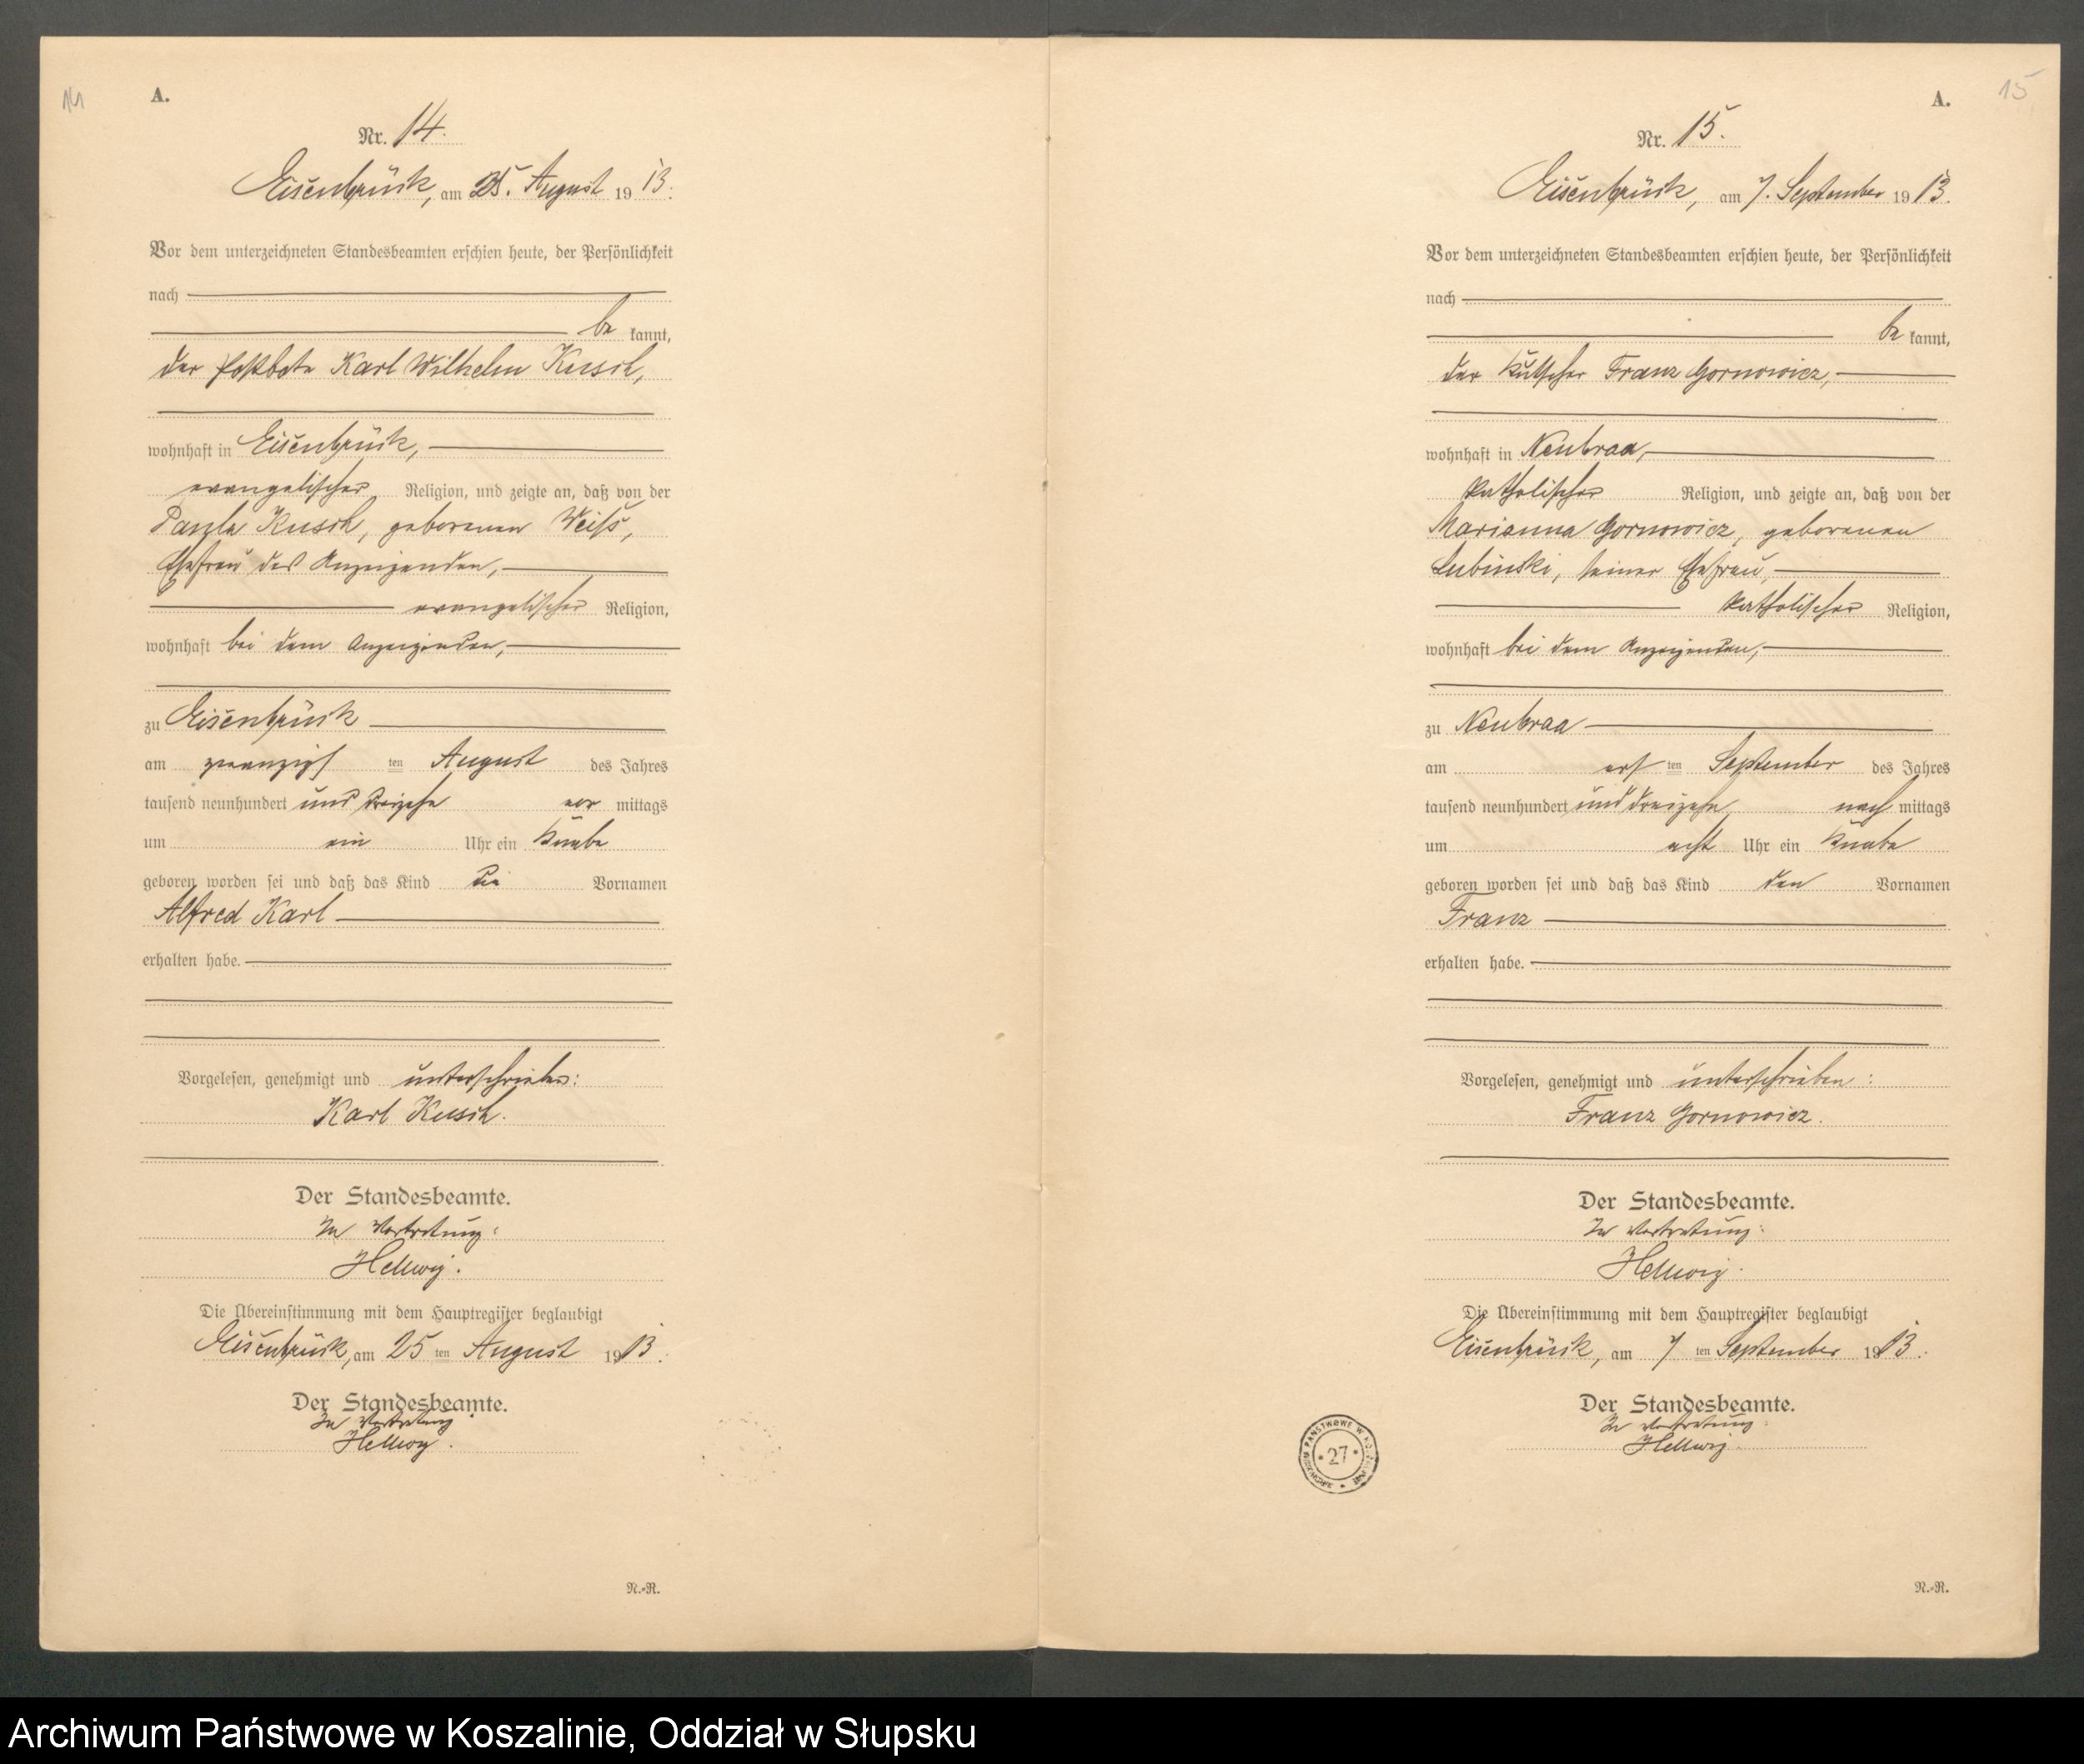 14
A.
Nr. 14.
Eisenbrück, am 25. August 1913.
Vor dem unterzeichneten Standesbeamten erschien heute, der Persönlichkeit
nach
be kannt,
der Postbote Karl Wilhelm Kusch,
wohnhaft in Eisenbrück,
evangelischer Religion, und zeigte an, daß von der
Paula Kusch, geborenen Weiß,
Ehefrau des Anzeigenden,
evangelischer Religion,
wohnhaft bei dem Anzeigenden,
zu Eisenbrück
am zwanzigs ten August des Jahres
tausend neunhundert und dreizehn vor mittags
um ein Uhr ein Knabe
geboren worden sei und daß das Kind die Vornamen
Alfred Karl
erhalten habe.
Vorgelesen, genehmigt und unterschrieben:
Karl Kusch.
Der Standesbeamte.
In Vertretung:
Hellwig.
Die Übereinstimmung mit dem Hauptregister beglaubigt
Eisenbrück, am 25 ten August 1913.
Der Standesbeamte.
In Vertretung
Hellwig.
N.-R.
15
A.
Nr. 15.
Eisenbrück, am 7. September 1913.
Vor dem unterzeichneten Standesbeamten erschien heute, der Persönlichkeit
nach
be kannt,
der Kutscher Franz Gornowicz,
wohnhaft in Neubraa,
katholischer Religion, und zeigte an, daß von der
Marianna Gornowicz, geborenen
Lubinski, seiner Ehefrau,
katholischer Religion,
wohnhaft bei dem Anzeigenden,
zu Neubraa
am ers ten September des Jahres
tausend neunhundert und dreizehn nach mittags
um acht Uhr ein Knabe
geboren worden sei und daß das Kind den Vornamen
Franz
erhalten habe.
Vorgelesen, genehmigt und unterschrieben:
Franz Gornowicz.
Der Standesbeamte.
In Vertretung:
Hellwig.
Die Übereinstimmung mit dem Hauptregister beglaubigt
Eisenbrück, am 7 ten September 1913.
Der Standesbeamte.
In Vertretung:
Hellwig.
ARCHIWUM PAŃSTWOWE W KOSZALINIE
27
N.-R.
Archiwum Państwowe w Koszalinie, Oddział w Słupsku